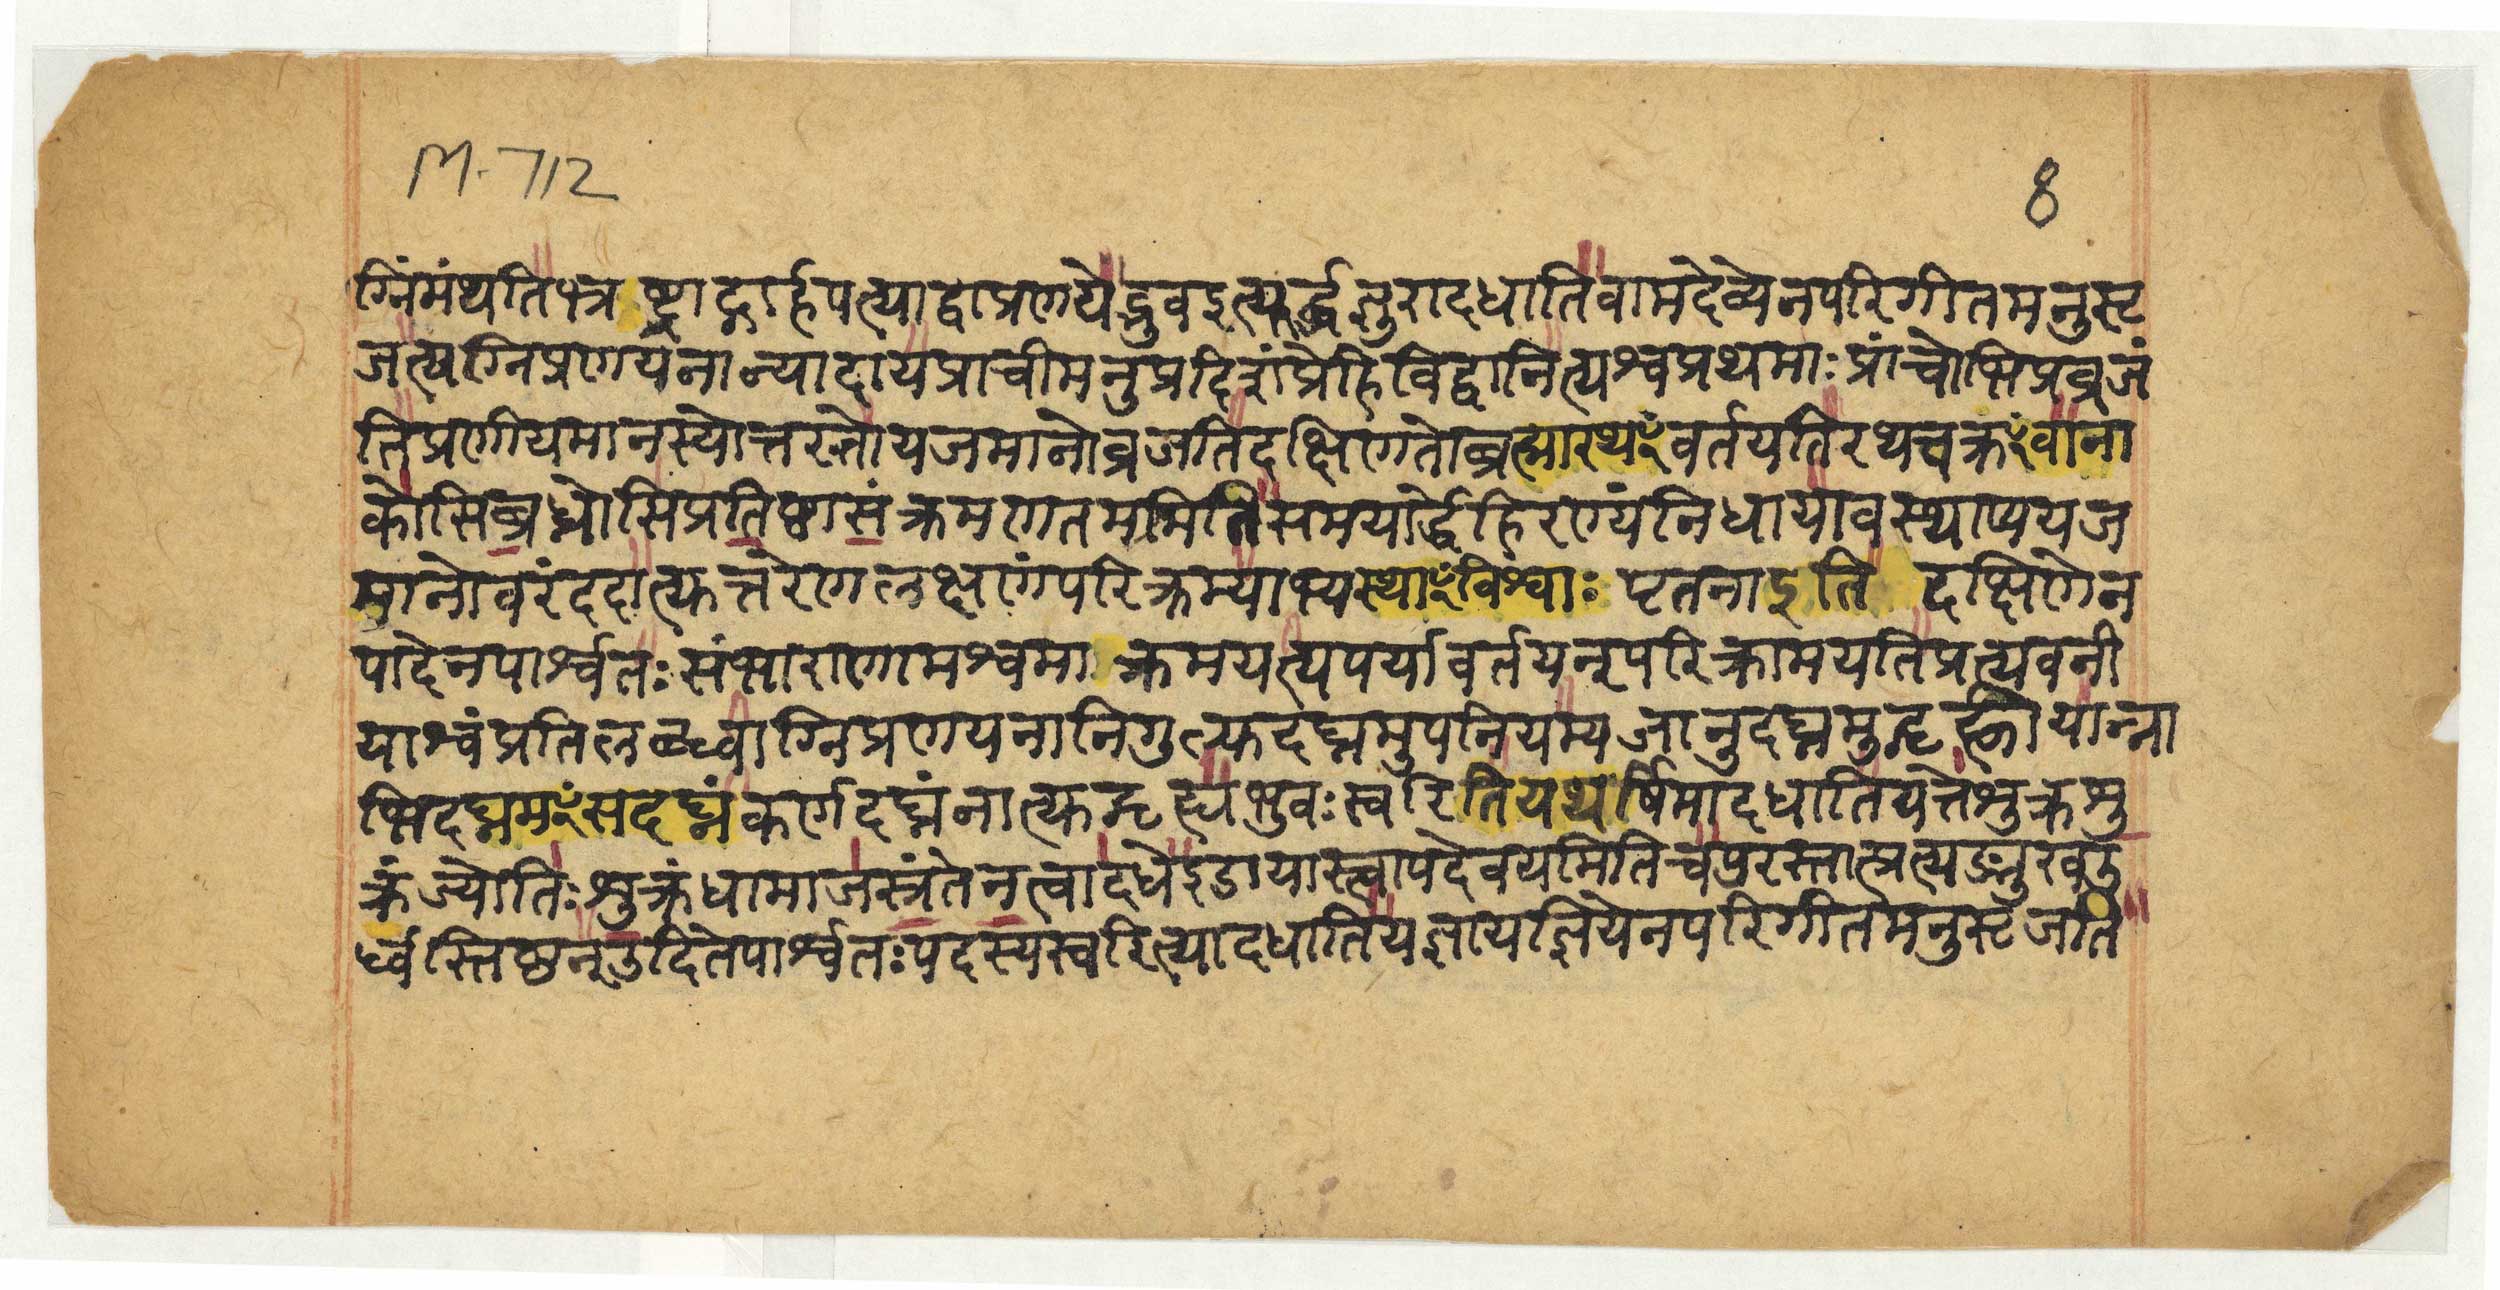 M-712
8
ग्निंमंथतिभ्त्रष्ट्राद्गार्हपत्याद्वाप्रणयेद्भुवइत्यूर्द्धज्ञुरादधातिवामदेव्येनपरिगीतमनुसृ
जत्यग्निप्रणयनान्यादायप्राचीमनुप्रदिशंप्रेहिविद्वानित्यश्वप्रथमाःप्रांचोभिप्रव्रजं
तिप्रणीयमानस्योत्तरतोयजमानोव्रजतिदक्षिणतोब्रह्मारथꣳवर्तयतिरथचक्रꣳवाना
कोसिब्रध्नोसिप्रतिष्ठासंक्रमणतममितिसमयार्द्धेहिरण्यंनिधायावस्थाप्ययज
मानोवरंददात्युत्तरेणलक्षणंपरिक्रम्याभ्यस्थाꣳविश्वाःपृतनाइति दक्षिणेन
पादेनपार्श्वतःसंभाराणामश्वमाक्रमयत्यपर्यावर्तयन्परिक्रामयतिप्रत्यवनी
याश्वंप्रतिलब्ध्वाग्निप्रणयनानिगुल्फदघ्नमुपनियम्यजानुदघ्नमुद्गृह्णीयान्ना
भिदघ्नमꣳसदघ्नंकर्णदघ्नंनात्युद्गृह्यभुवःस्वरितियथर्षिमादधातियत्तेशुक्रशु
क्रंज्योतिःशुक्रंधामाजस्त्रंतेनत्वादधेइडायास्त्वापदेवयमितिचपुरस्तात्प्रत्यङ्मुखउ
र्ध्वस्तिष्ठन्नुदितेपार्श्वतःपदस्यस्वरित्यादधातियज्ञायज्ञियेनपरिगीतमनुसृजति